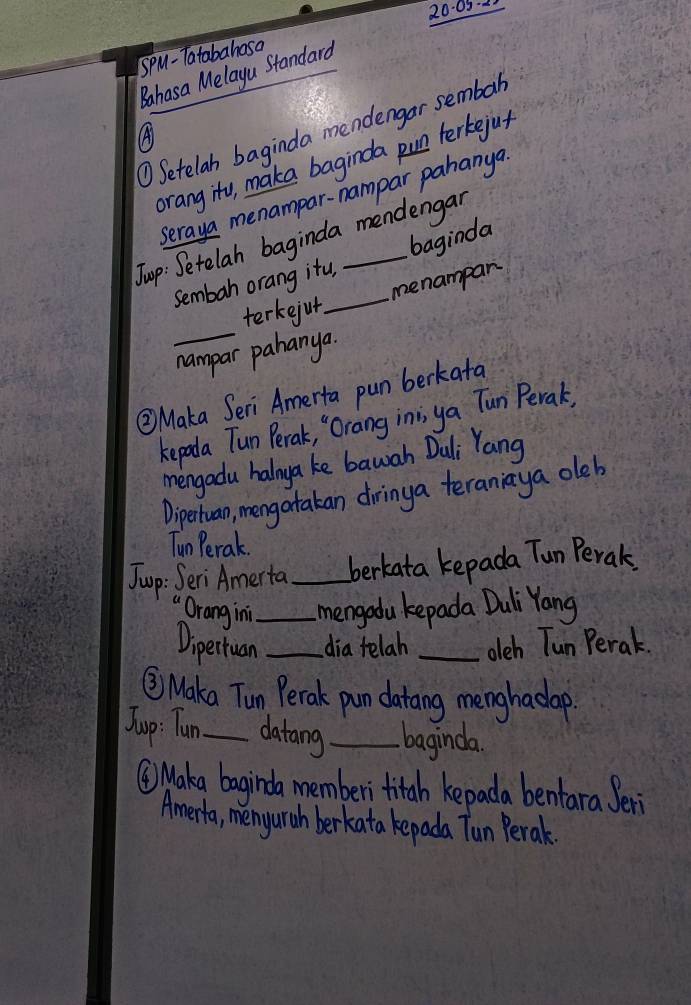 20-05-
SPM-Tatabahasa
Bahasa Melayu Standard
Ⓐ
① Setelah baginda mendengar sembah
orang itu, maka baginda pun terkejut
seraya menampar-nampar pahanya.
Jwp: Setelah baginda mendengar
sembah orang itu, _____ baginda
_____ terkejut _____ menampar-
nampar pahanya.
② Maka Seri Amerta pun berkata
kepada Tun Perak, "Orang ini, ya Tun Perak,
mengadu halnya ke bawah Duli Yang
Dipertuan, mengatakan dirinya teraniaya oleh
Tun Perak.
Jwp: Seri Amerta _____ berkata kepada Tun Perak,
"Orang ini _____ mengadu kepada Duli Yang
Dipertuan _____ dia telah _____ oleh Tun Perak.
③ Maka Tun Perak pun datang menghadap.
Jwp: Tun _____ datang _____ baginda.
④ Maka baginda memberi titah kepada bentara Seri
Amerta, menyuruh berkata kepada Tun Perak.